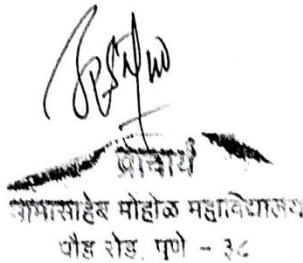 प्राचार्य
मामासाहेब मोहोळ महाविद्यालय
पौड रोड, पुणे - ३८